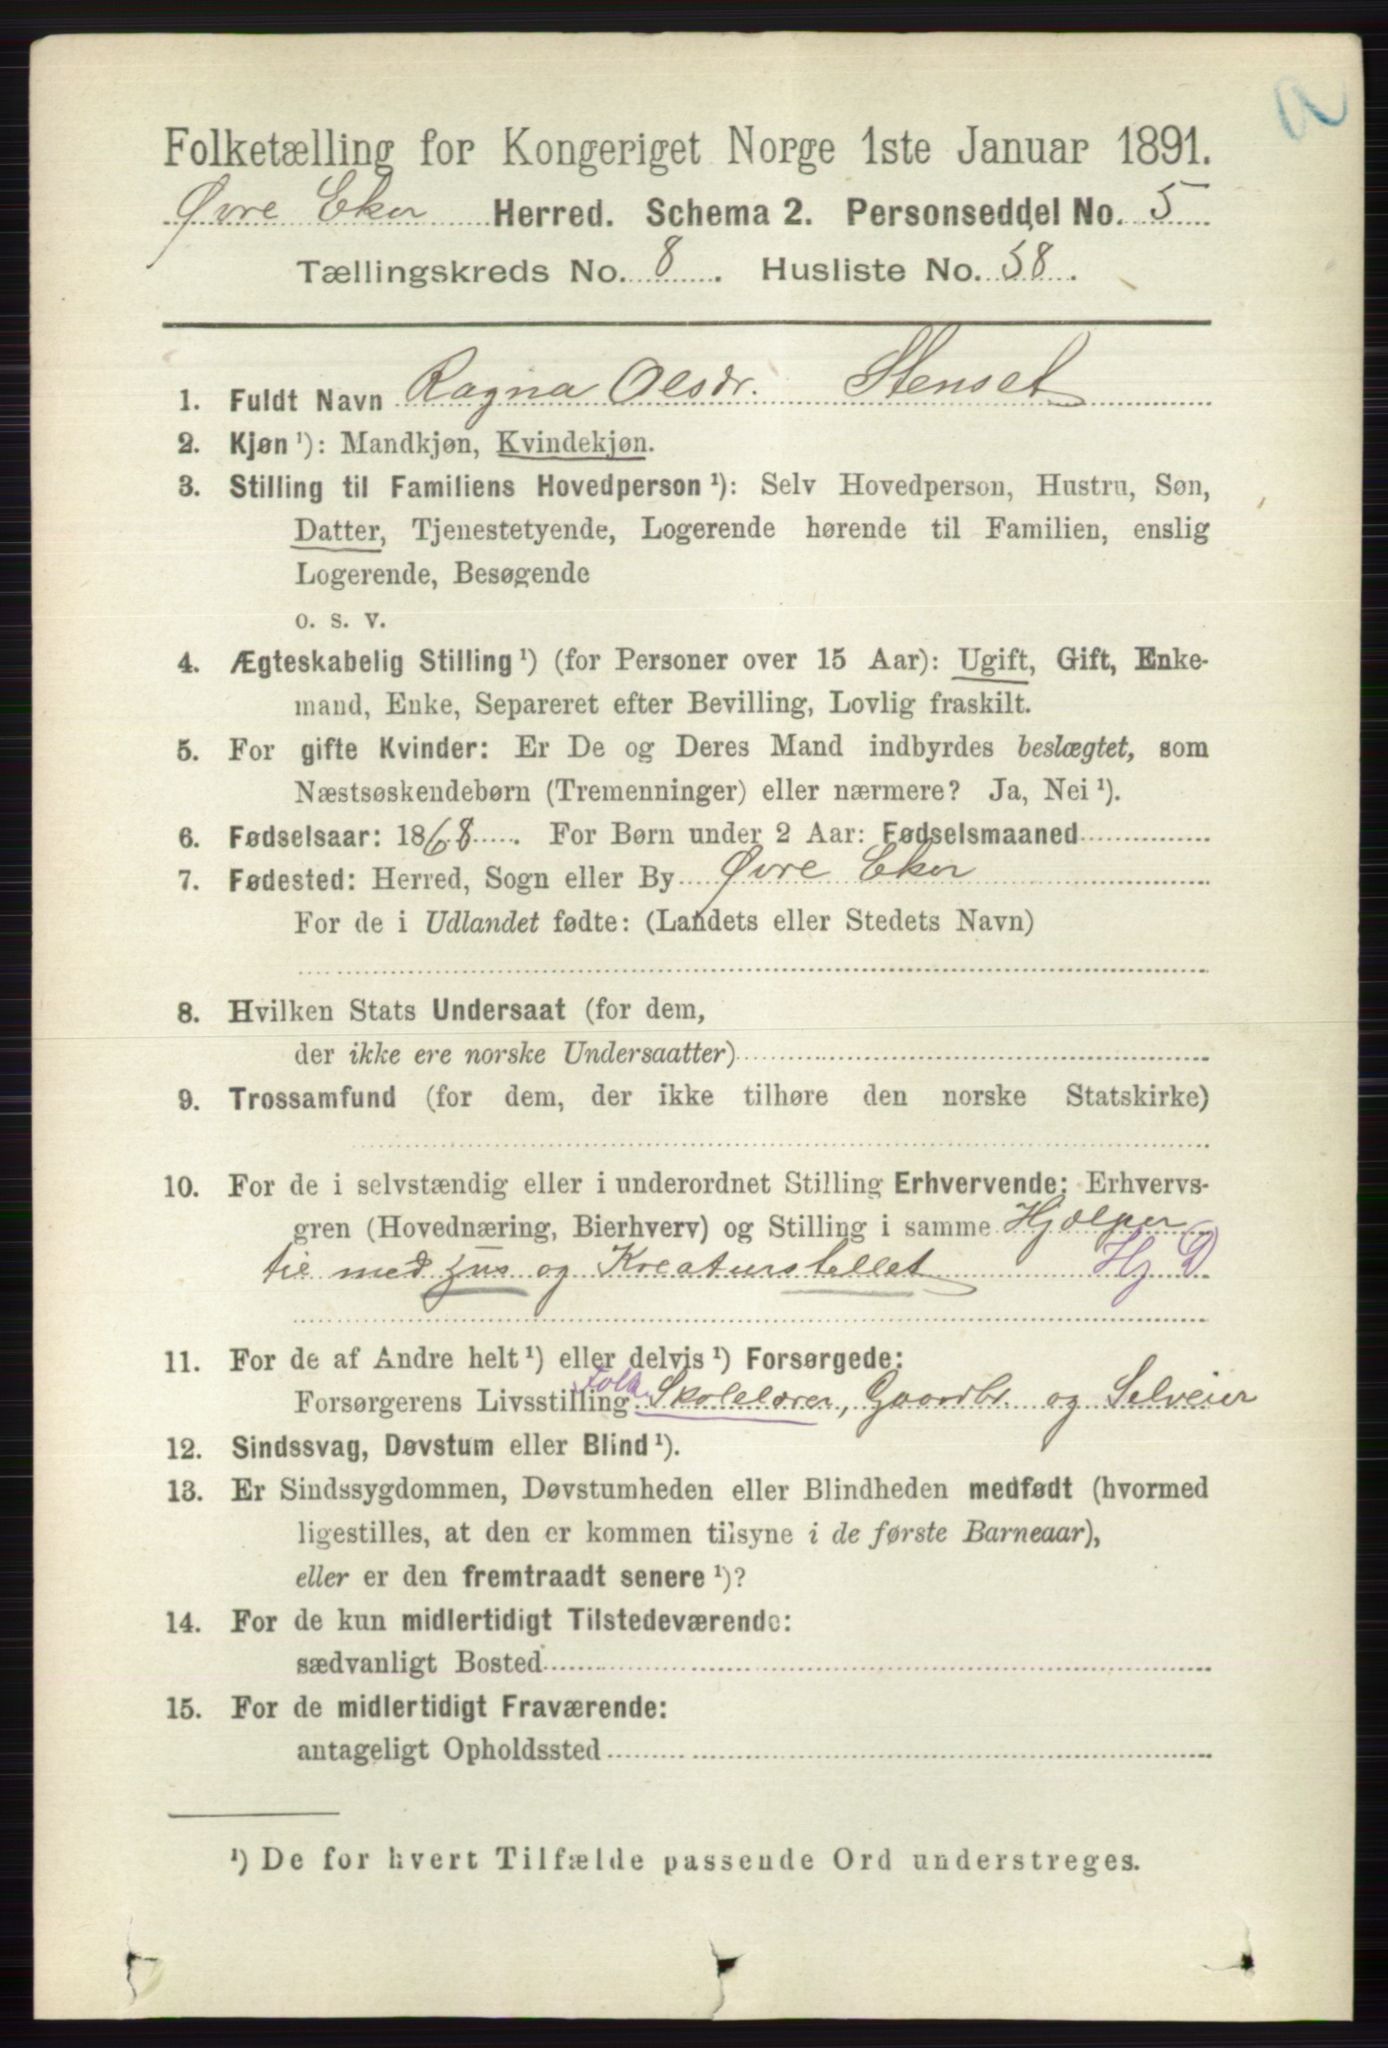 Folketælling for Kongeriget Norge 1ste Januar 1891.
Øvre Eker Herred. Schema 2. Personseddel No. 5
Tællingskreds No. 8. Husliste No. 58.
1. Fuldt Navn Ragna Olsdr. Stenset
2. Kjøn ¹): Mandkjøn, Kvindekjøn.
3. Stilling til Familiens Hovedperson ¹): Selv Hovedperson, Hustru, Søn,
Datter, Tjenestetyende, Logerende hørende til Familien, enslig
Logerende, Besøgende
o. s. v.
4. Ægteskabelig Stilling ¹) (for Personer over 15 Aar): Ugift, Gift, Enke-
mand, Enke, Separeret efter Bevilling, Lovlig fraskilt.
5. For gifte Kvinder: Er De og Deres Mand indbyrdes beslægtet, som
Næstsøskendebørn (Tremenninger) eller nærmere? Ja, Nei ¹).
6. Fødselsaar: 1868. For Børn under 2 Aar: Fødselsmaaned
7. Fødested: Herred, Sogn eller By Øvre Eker
For de i Udlandet fødte: (Landets eller Stedets Navn)
8. Hvilken Stats Undersaat (for dem,
der ikke ere norske Undersaatter)
9. Trossamfund (for dem, der ikke tilhøre den norske Statskirke)
10. For de i selvstændig eller i underordnet Stilling Erhvervende: Erhvervs-
gren (Hovednæring, Bierhverv) og Stilling i samme Hjælper
til med hus og Kreaturstellet Hj D
11. For de af Andre helt ¹) eller delvis ¹) Forsørgede:
Forsørgerens Livsstilling Folk Skolelærer, Gaardbr. og Selveier
12. Sindssvag, Døvstum eller Blind ¹).
13. Er Sindssygdommen, Døvstumheden eller Blindheden medfødt (hvormed
ligestilles, at den er kommen tilsyne i de første Barneaar),
eller er den fremtraadt senere ¹)?
14. For de kun midlertidigt Tilstedeværende:
sædvanligt Bosted
15. For de midlertidigt Fraværende:
antageligt Opholdssted
¹) De for hvert Tilfælde passende Ord understreges.